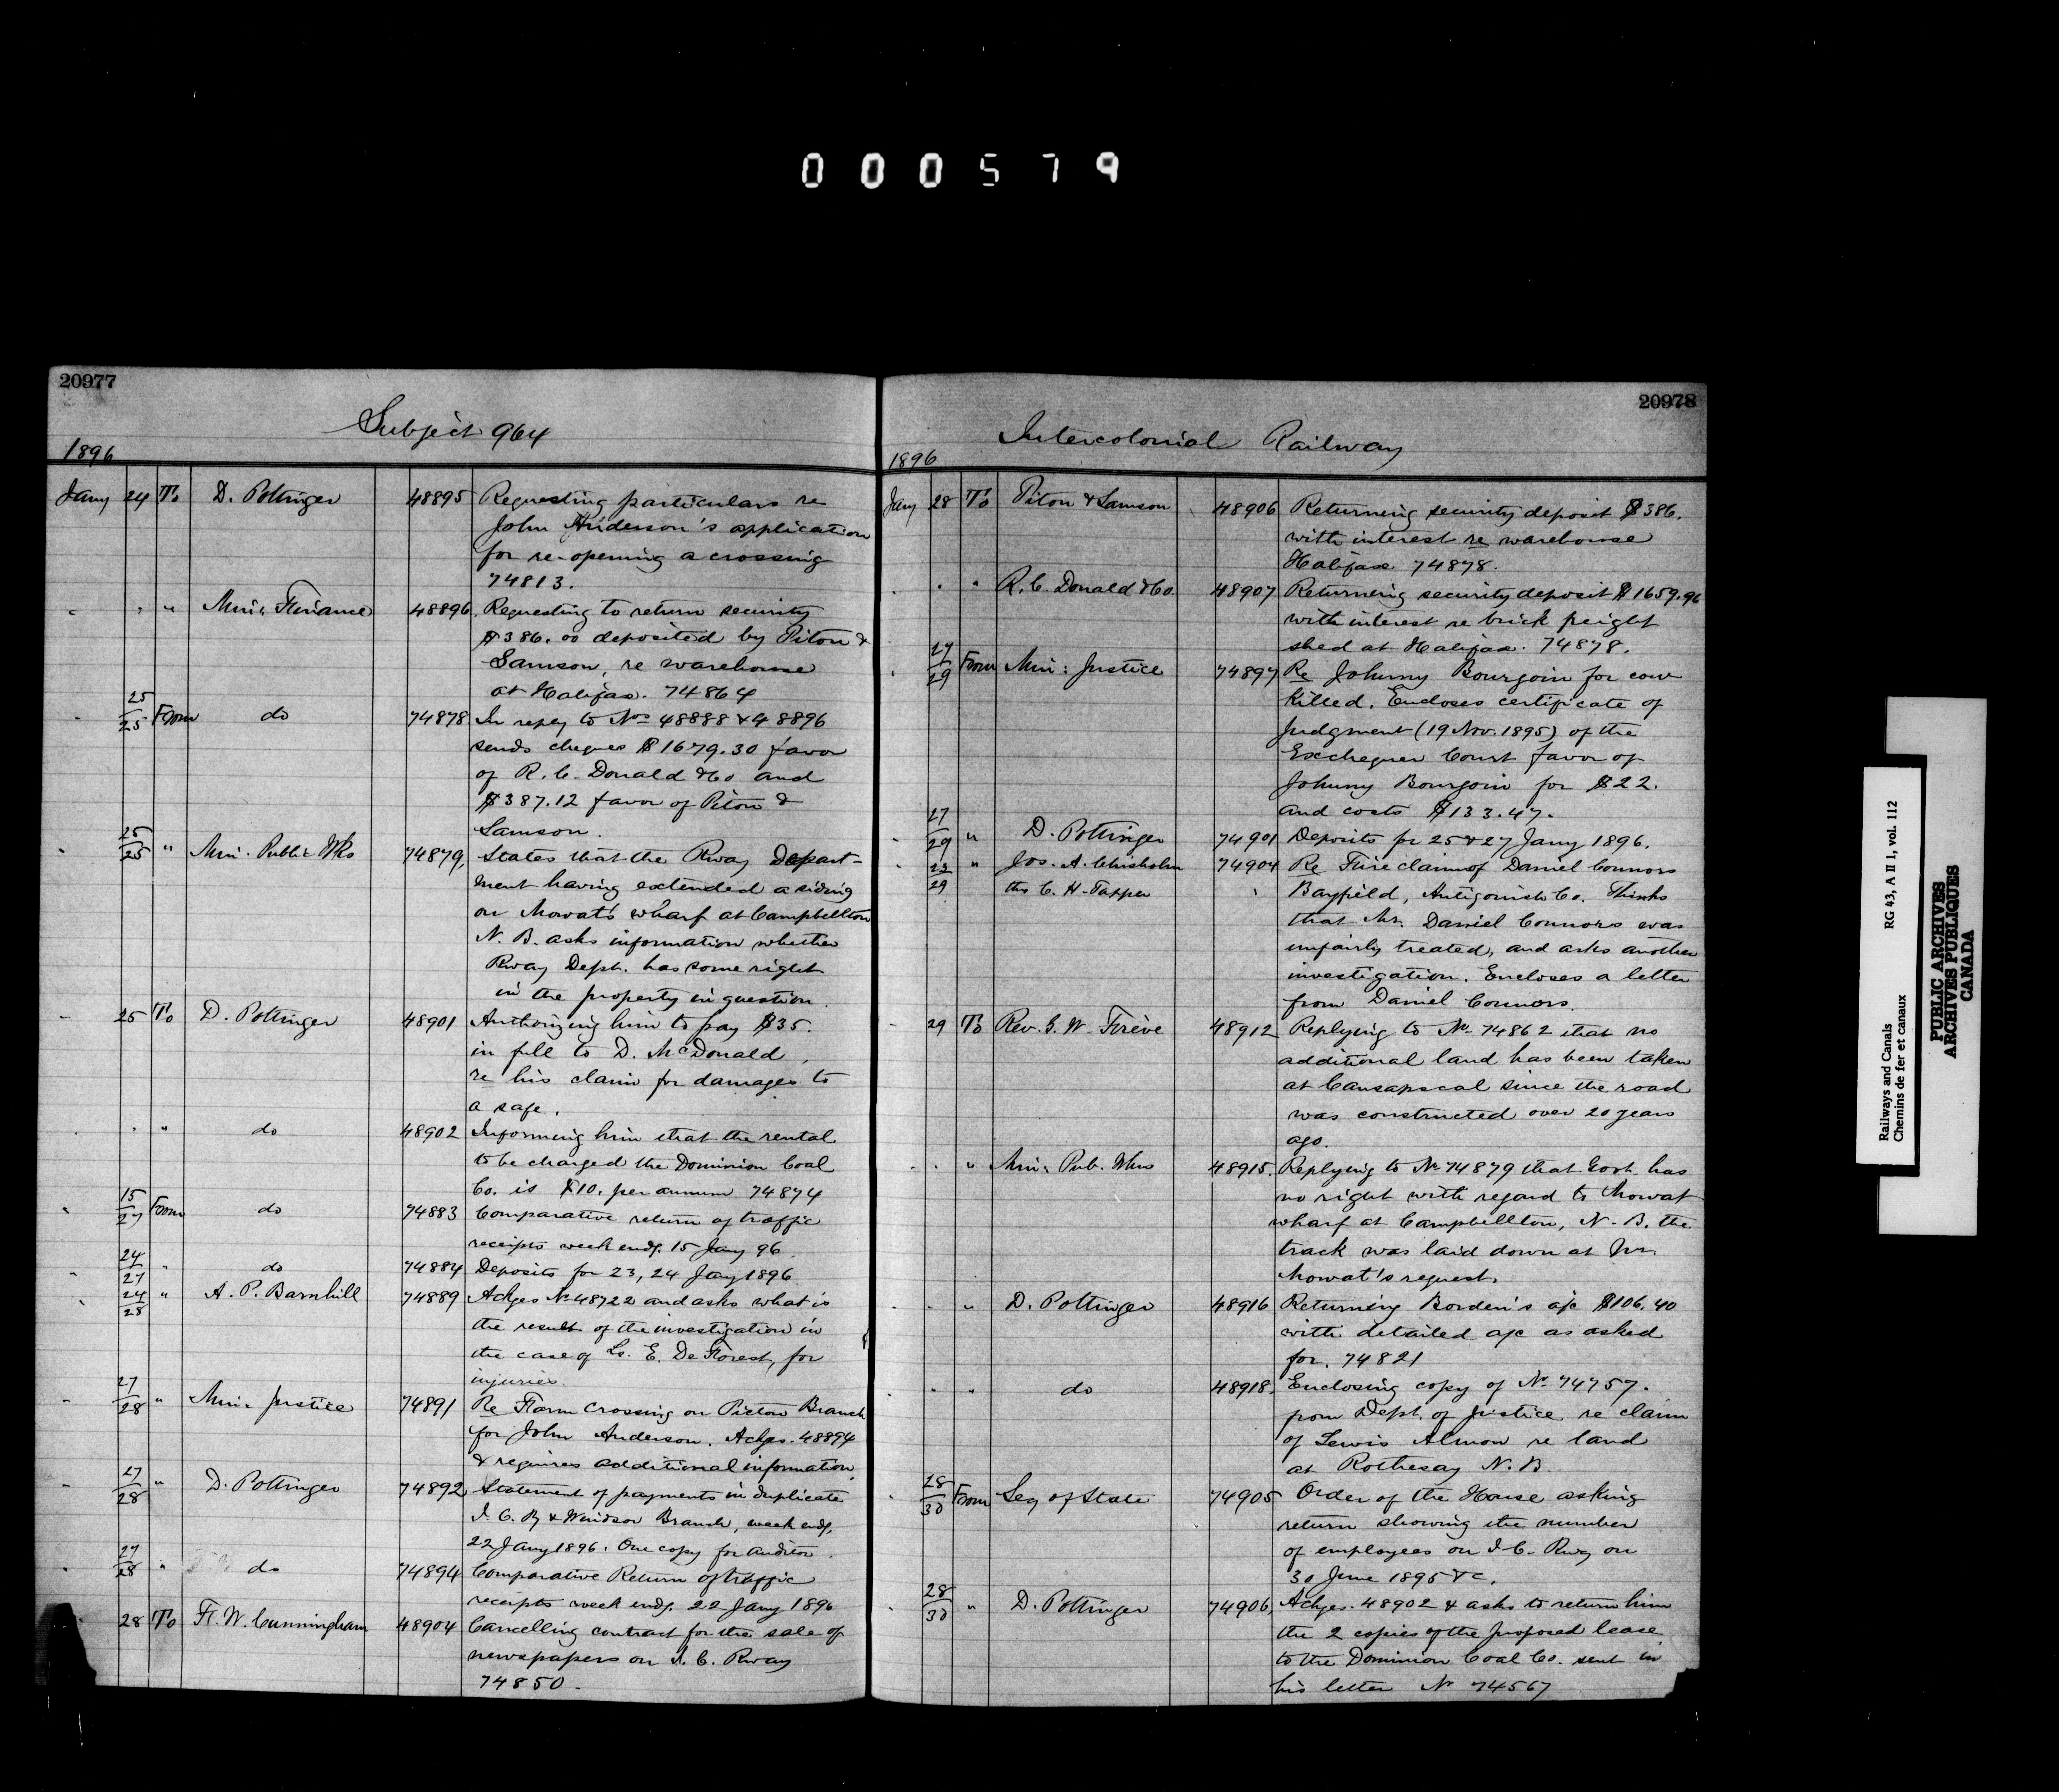 000579
20977
Subject 964
1896
Jany 24 To D. Pottinger 48895 Requesting particulars re
John Anderson's application
for re-opening a crossing
74813.
" " Min. Finance 48896 Requesting to return security
$386.00 deposited by Piton &
Samson, re warehouse
at Halifax. 74864
25/25 From do 74878 In reply to Nos 48888 & 48896
sends cheques $1679.30 favor
of R. C. Donald & Co and
$387.12 favor of Piton &
Samson.
25/25 " Min. Public Wks 74879, States that the Rway Depart-
ment having extended a siding
on Mowat's wharf at Campbellton
N. B. asks information whether
Rway Dept. has some right
in the property in question.
25 To D. Pottinger 48901 Authorizing him to pay $35.
in full to D. McDonald,
re his claim for damages to
a safe.
" " do 48902 Informing him that the rental
to be charged the Dominion Coal
Co. is $10. per annum 74874
15/27 From do 74883 Comparative return of traffic
receipts week endg. 15 Jany 96
24/27 " do 74884 Deposits for 23, 24 Jany 1896
24/28 " A. P. Barnhill 74889 Ackges No 48722 and asks what is
the result of the investigation in
the case of Ls. E. De Forest, for
injuries.
27/28 " Min. Justice 74891 Re Farm Crossing on Pictou Branch
for John Anderson. Ackges. 48894
& requires additional information
27/28 " D. Pottinger 74892 Statement of payments in duplicate
I. C. Ry & Windsor Branch, week endg.
22 Jany 1896. One copy for Auditor.
27/28 " do 74894 Comparative Return of traffic
receipts week endg. 22 Jany 1896
28 To F. W. Cunningham 48904 Cancelling contract for the sale of
newspapers on I. C. Rway
74850.
20978
Intercolonial Railway
1896
Jany 28 To Piton & Samson 48906 Returning security deposit $386.
with interest re warehouse
Halifax 74878.
" " R. C. Donald & Co. 48907 Returning security deposit $1659.96
with interest re brick freight
shed at Halifax. 74878.
27/29 From Min: Justice 74897 Re Johnny Bourgoin for cow
killed. Encloses certificate of
Judgment (19 Nov. 1895) of the
Exchequer Court favor of
Johnny Bourgoin for $22.
and costs $133.47.
27/29 " D. Pottinger 74901 Deposits for 25 & 27 Jany 1896.
23/29 " Jos. A. Chisholm 74904 Re Fire claim of Daniel Connors
thro C. H. Tupper Bayfield, Antigonish Co. Thinks
that Mr. Daniel Connors was
unfairly treated, and asks another
investigation. Encloses a letter
from Daniel Connors.
29 To Rev. W. 48912 Replying to No 74862 that no
additional land has been taken
at Causapscal since the road
was constructed over 20 years
ago.
" " Min. Pub. Wks 48915. Replying to No 74879 that Govt. has
no right with regard to Mowat
wharf at Campbellton, N. B. the
track was laid down at Mr.
Mowat's request.
" " D. Pottinger 48916 Returning Borden's a/c $106.40
with detailed a/c as asked
for. 74821
" " do 48918. Enclosing copy of No 74757.
from Dept. of Justice re claim
of Lewis Almon re land
at Rothesay N. B.
28/30 From Secy of State 74905 Order of the House asking
return showing the number
of employees on I. C. Rwy on
30 June 1895 &c.
28/30 " D. Pottinger 74906, Ackges. 48902 & asks to return him
the 2 copies of the proposed lease
to the Dominion Coal Co. sent in
his letter No 74567
Railways and Canals RG 43, A II 1, vol. 112
Chemins de fer et canaux
PUBLIC ARCHIVES
ARCHIVES PUBLIQUES
CANADA